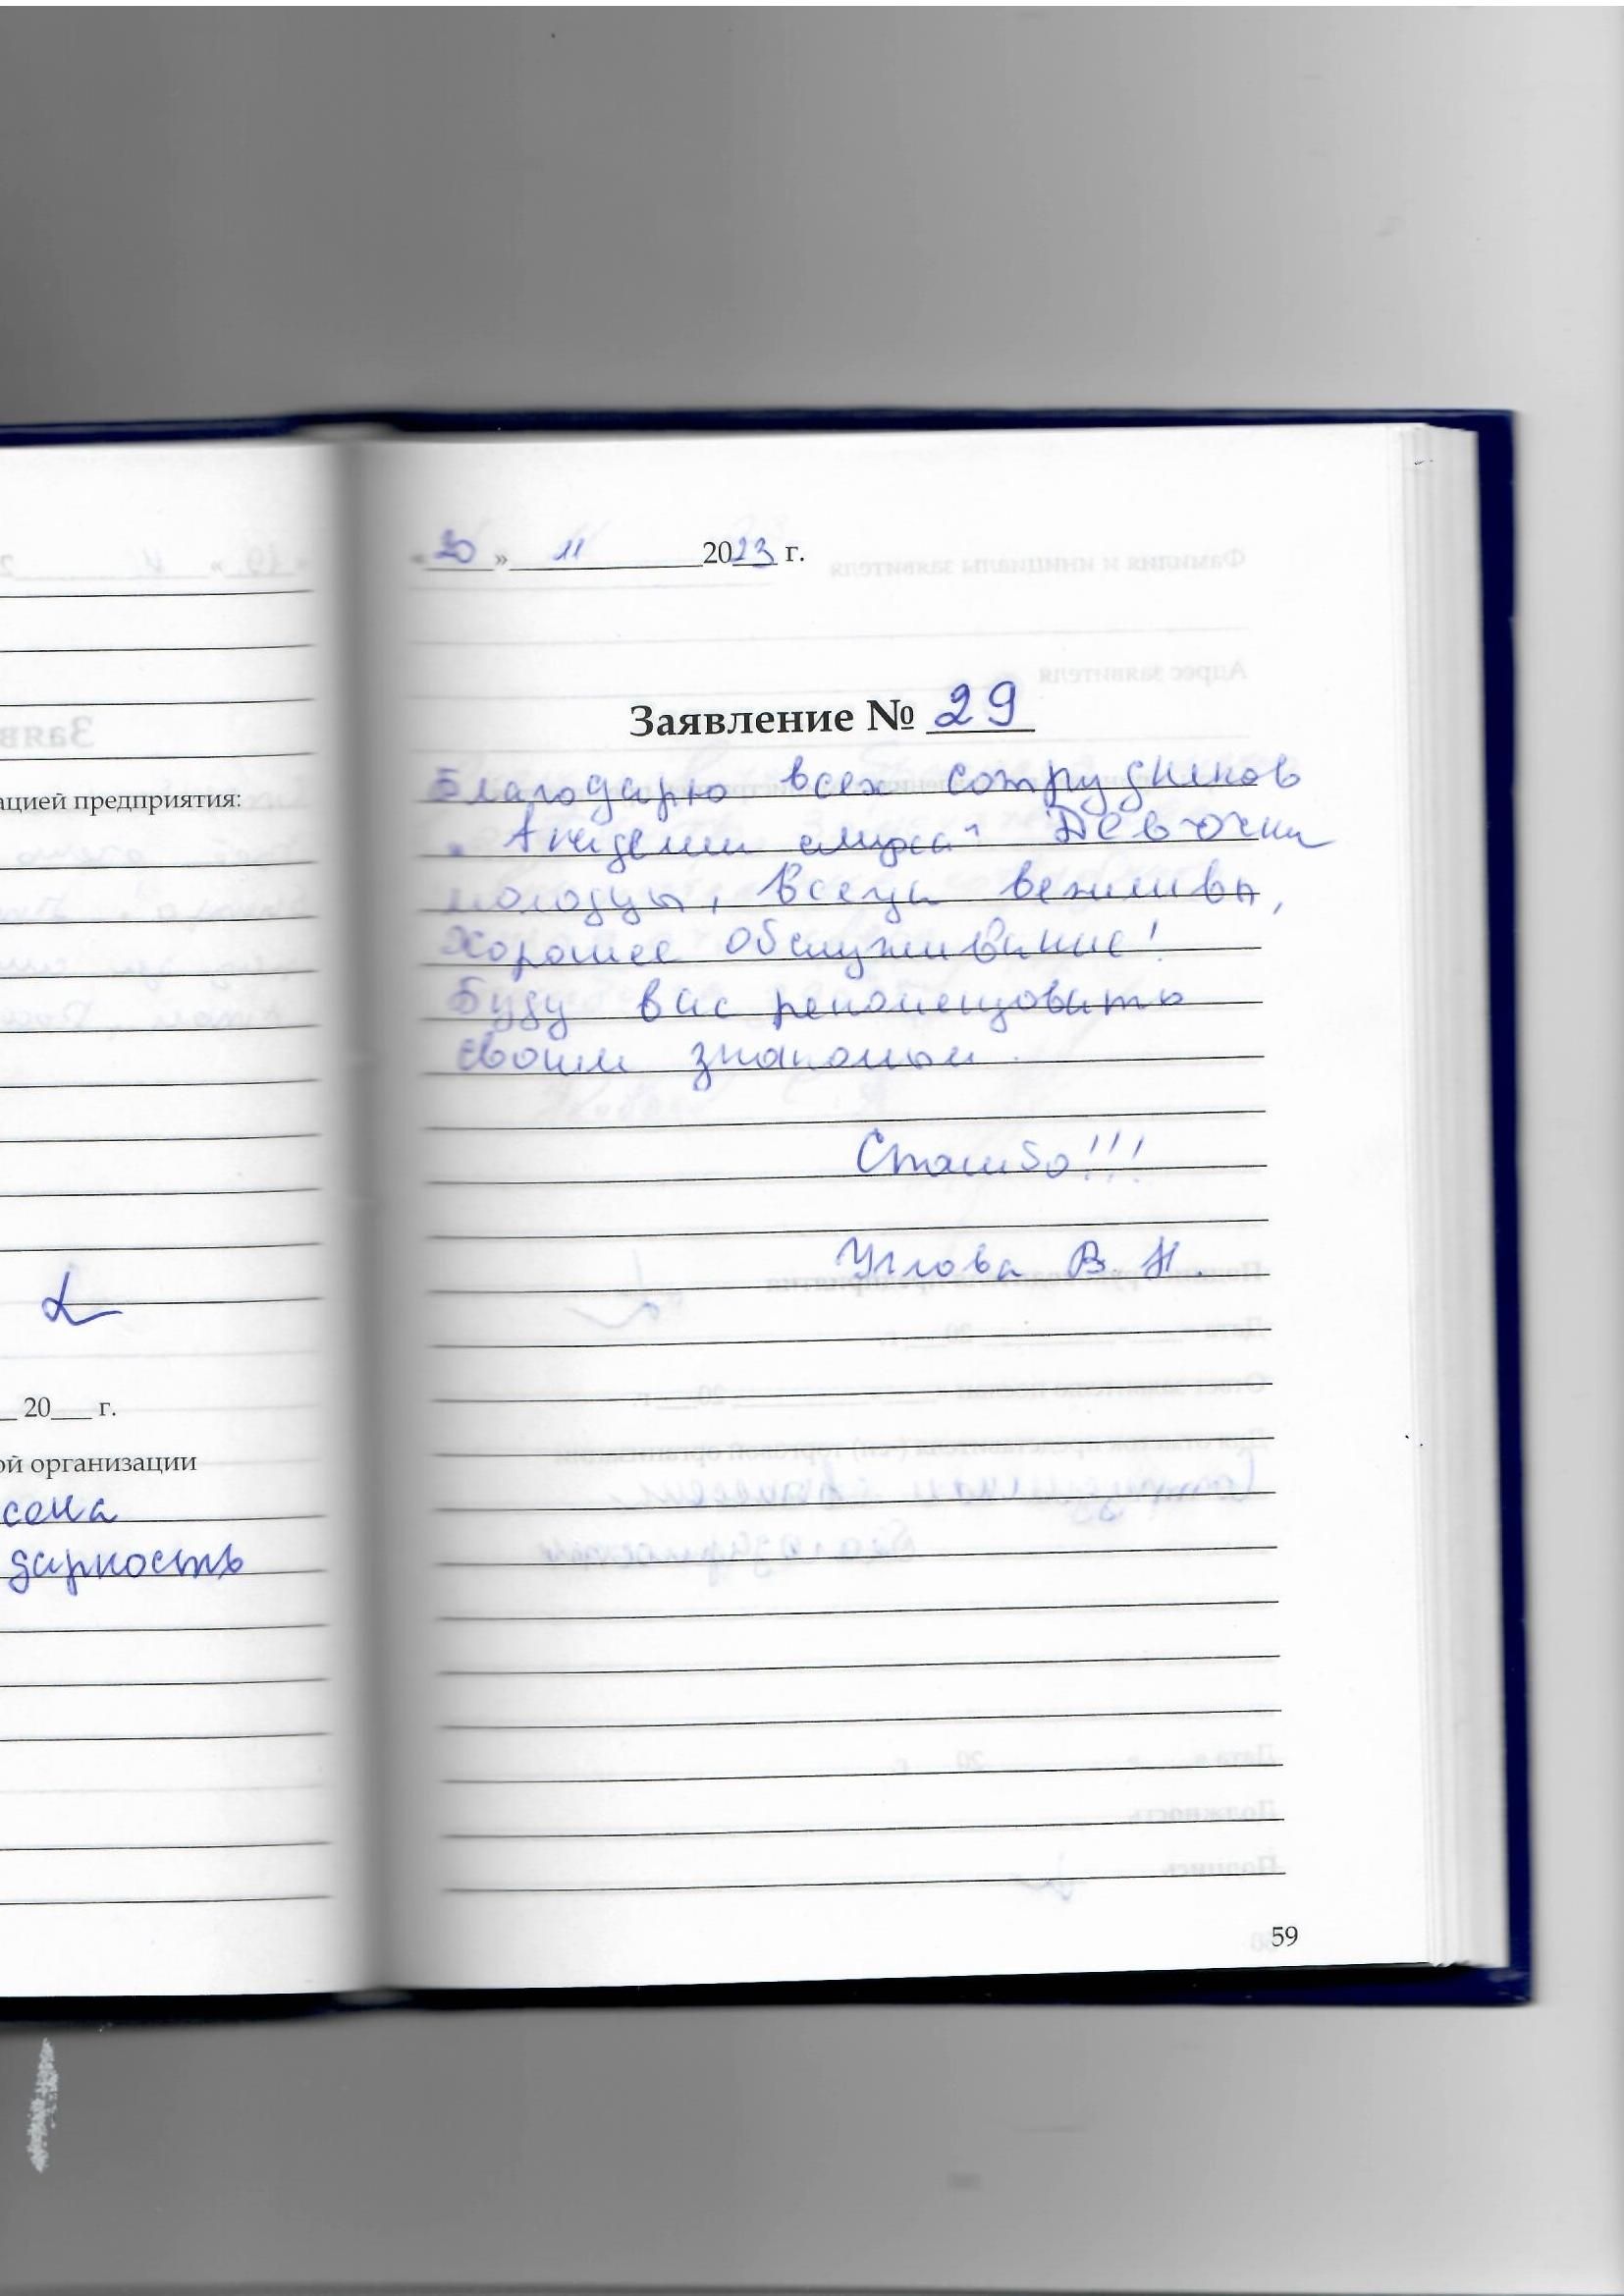 ацией предприятия:
20___ г.
ой организации
сена
дарность
«30» 11 2023 г.
Заявление № 29
Благодарю всех сотрудников
"Академии слуха" Девочки
молодцы, всегда вежливы,
Хорошее обслуживание!
Буду вас рекомендовать
своим знакомым.
Спасибо!!!
Углова В. Н.
59